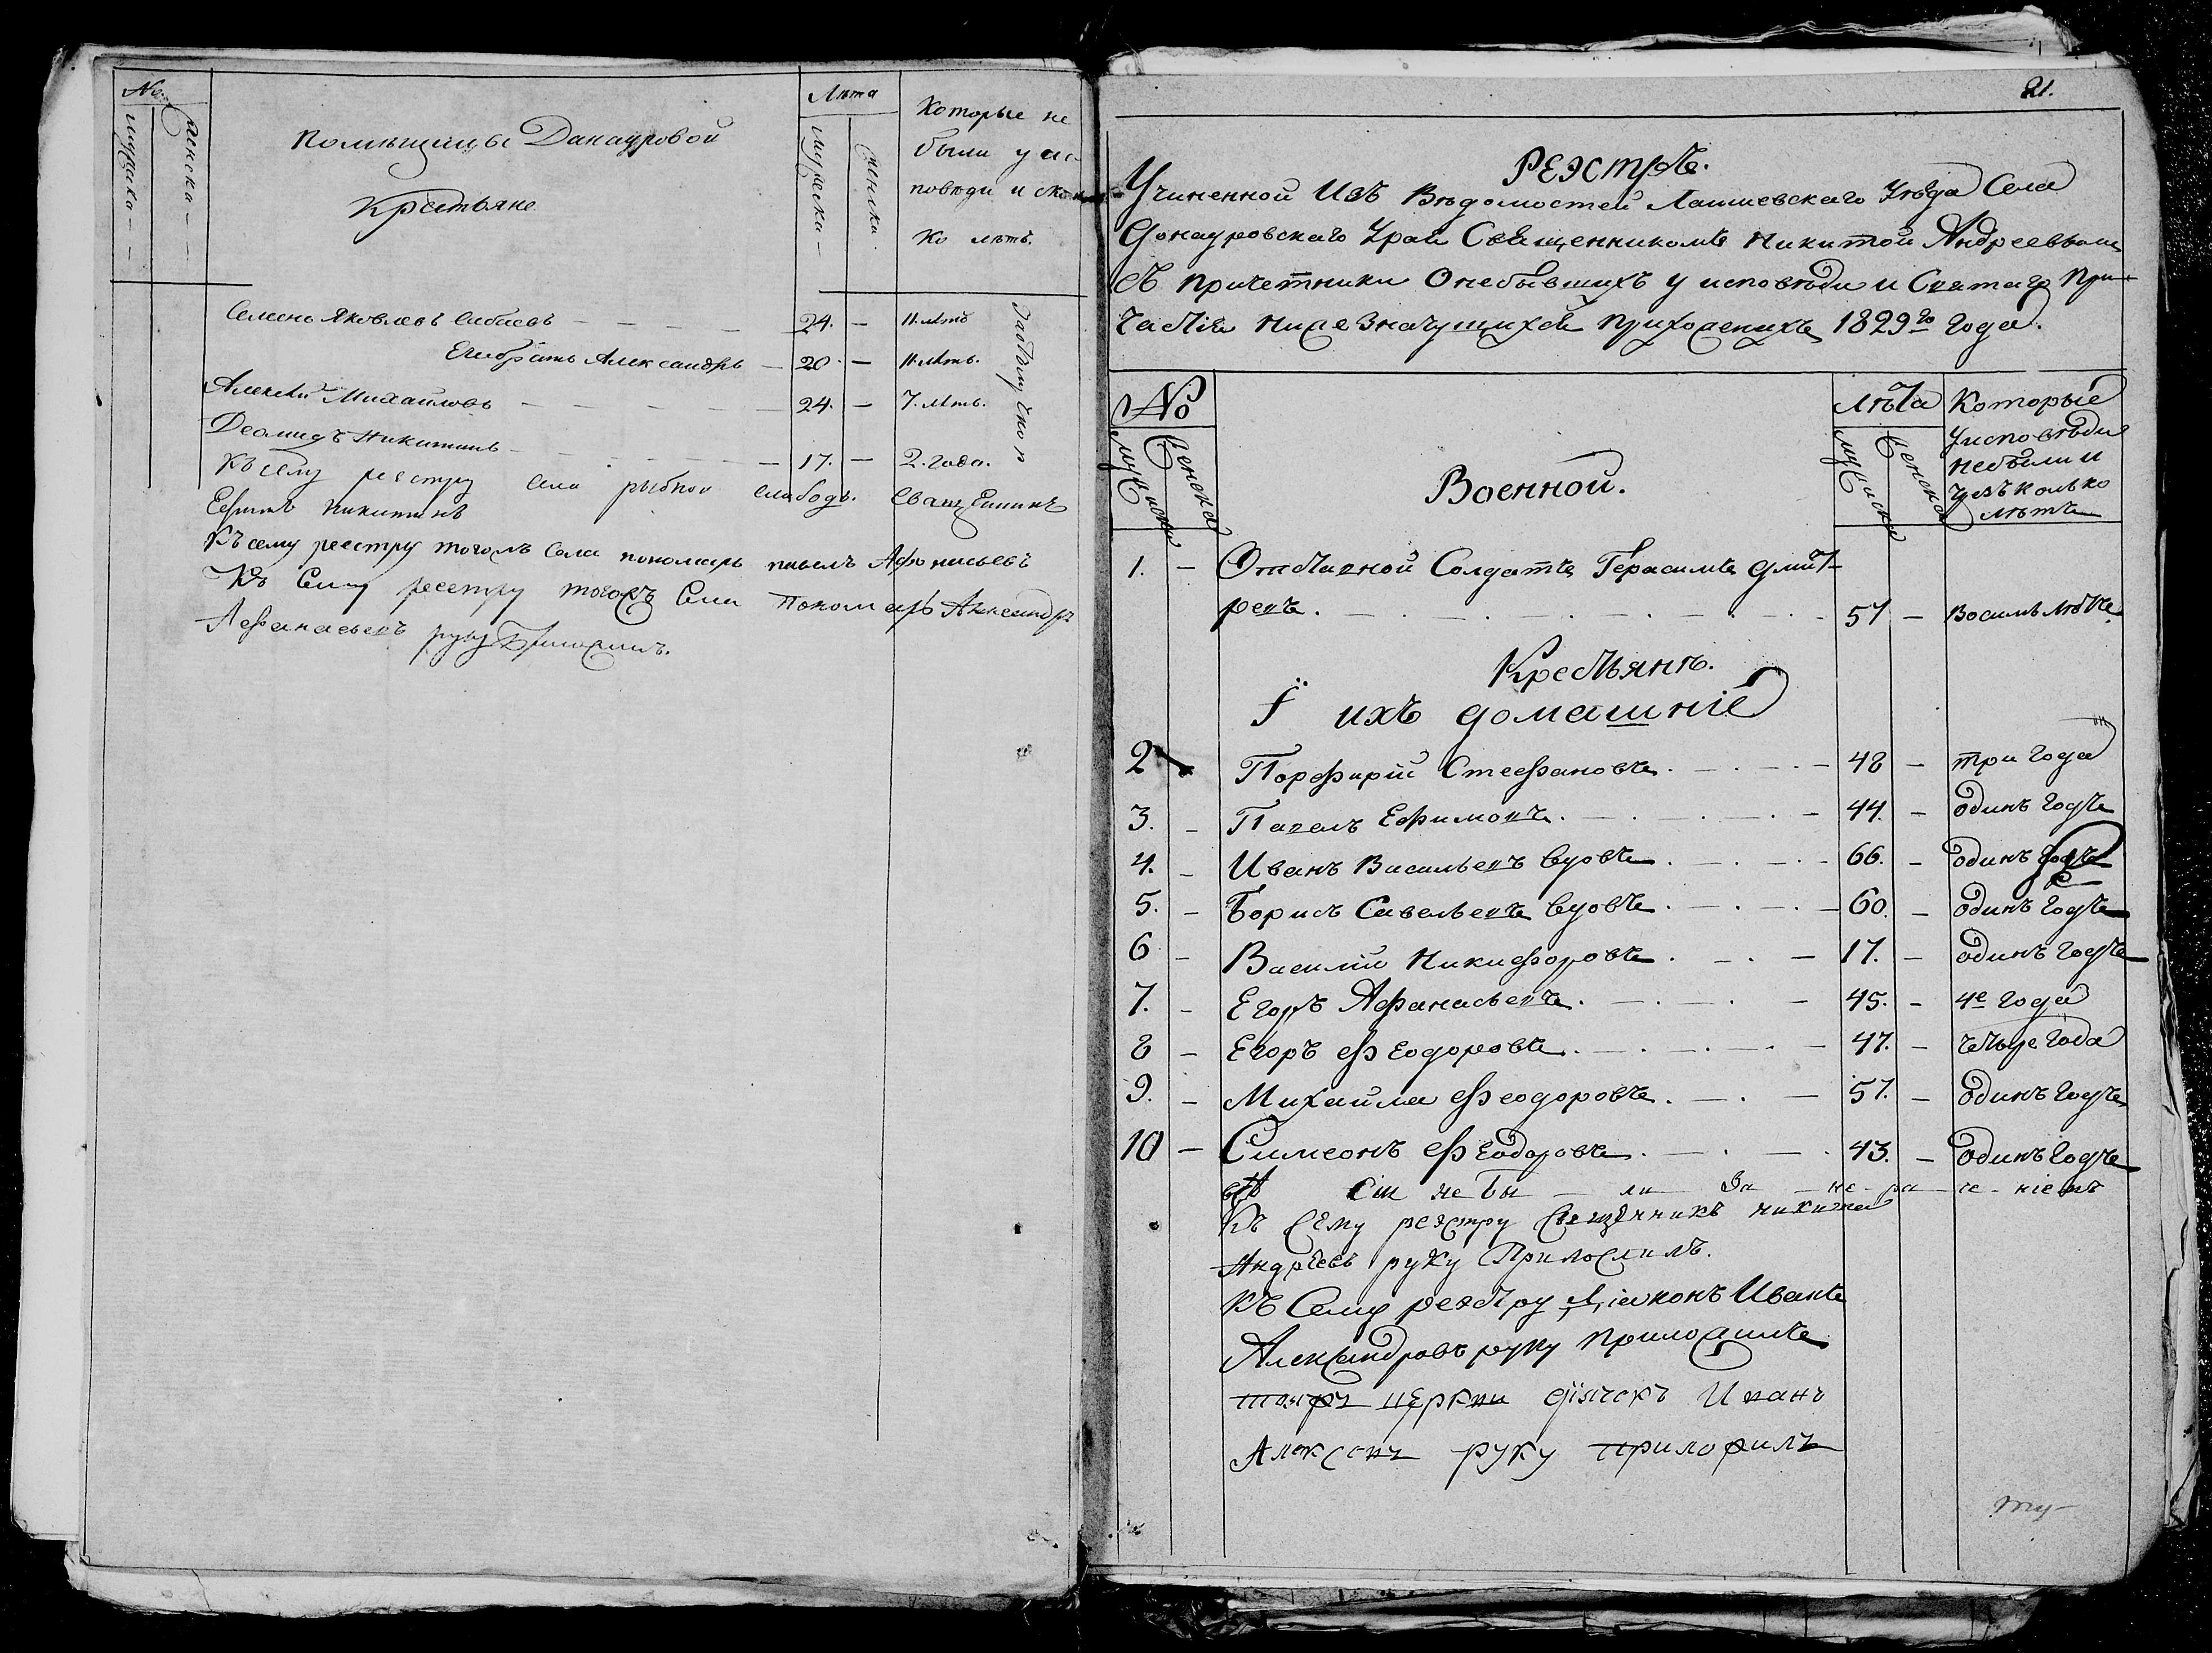 №
мужеска
женска
Помѣщицы Данауровой
Крестьяне
Лѣта
мужеска
женска
Которые не
были у ис
повѣди и сколь
ко лѣтъ.
Семенъ Яковлевъ — — — 24. — 11. лѣтъ
Егобратъ Александръ — 20. — 11. лѣтъ.
Алексѣй Михайловъ — — — 24. — 7. лѣтъ.
Деомидъ Никитинъ — — — 17. — 2. года.
Къ сему реестру села рыбной слободы. Священникъ
Ефимъ Никитинъ
Къ сему реестру тогожъ села пономарь павелъ Афонасьевъ
Къ Сему реестру тогожъ Села Пономарь Александръ
Афанасьевъ руку Приложилъ.
21.
РЕЭстръ.
Учиненной Изъ Вѣдомостей Лаишевскаго Уѣзда Села
Донауровскаго Священникомъ Никитой Андреевымъ
съ причетники Онебывшихъ у исповѣди и Святаго При
частія нижезначущихся прихоженехъ 1829го Года.
№
мужеска
женска
Военной.
Лѣта
мужеска
женска
Которые
Уисповѣди
небыли и
сколько
лѣтъ
1. — Отставной Солдатъ Герасимъ Дмит
ревъ. — 57 — Восимь лѣтъ.
Крестьянъ.
Ї ихъ домашніе
2 Порфирій Стефановъ. — 48 — три года
3. — Павелъ Ефимовъ. — 44. — одинъ годъ
4. — Иванъ Васильевъ вдовъ — 66. — одинъ годъ
5. — Борисъ Савельевъ вдовъ — 60. — одинъ годъ
6 — Василій Никифоровъ. — 17. — одинъ годъ
7. — Егоръ Афанасьевъ. — 45. — 4е года
8 — Егоръ Феодоровъ. — 47. — четыре года
9. — Михайла Феодоровъ. — 57. — Одинъ годъ
10 — Симеонъ Феодоровъ. — 43. — Одинъ годъ
всѣ Сіи не бы — ли — За — не — ра — че — ніемъ
Къ Сему реэстру Священникъ никита
Андреевъ руку Приложилъ.
Къ Сему реэстру Діаконъ Иванъ
Александровъ руку приложилъ
тояжъ церкви дїячекъ Иванъ
Алексеевъ руку приложилъ